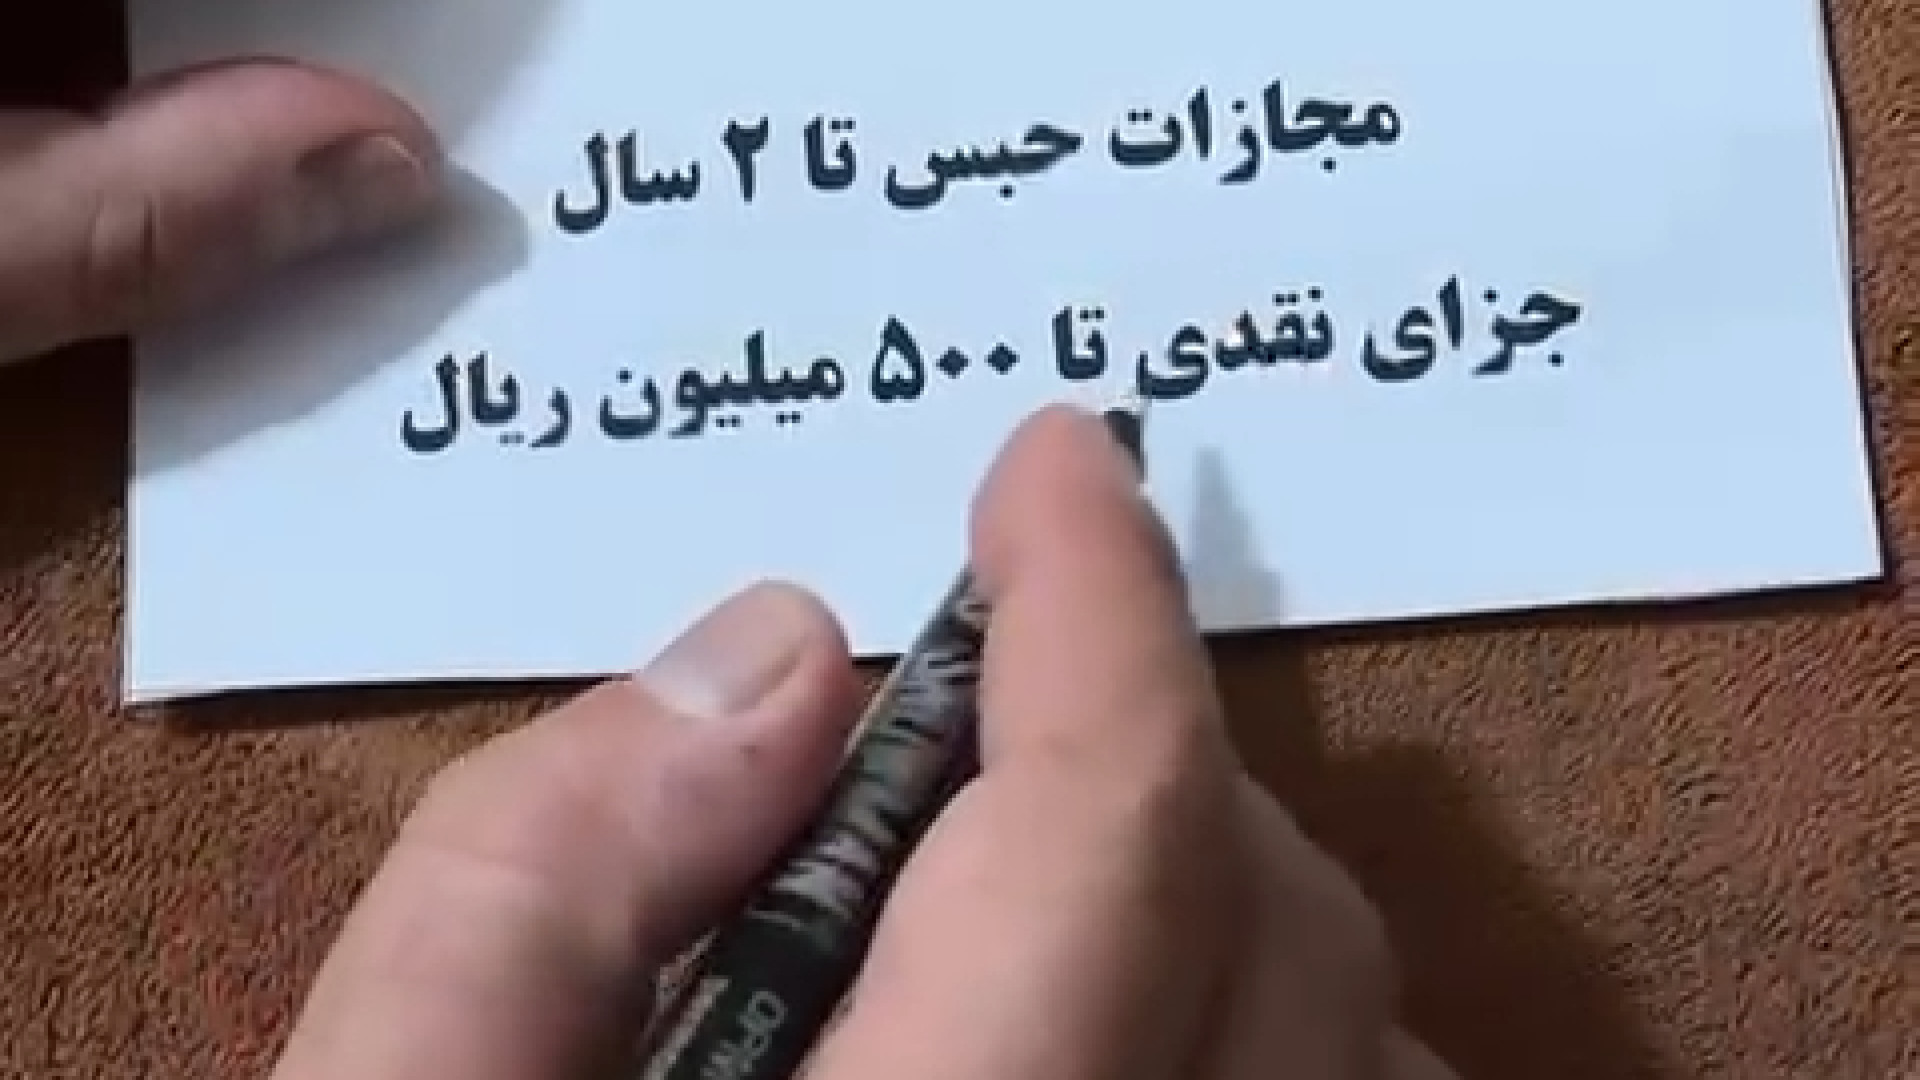 مجازات حبس تا ۲ سال
جزای نقدی تا ۵۰۰ میلیون ریال